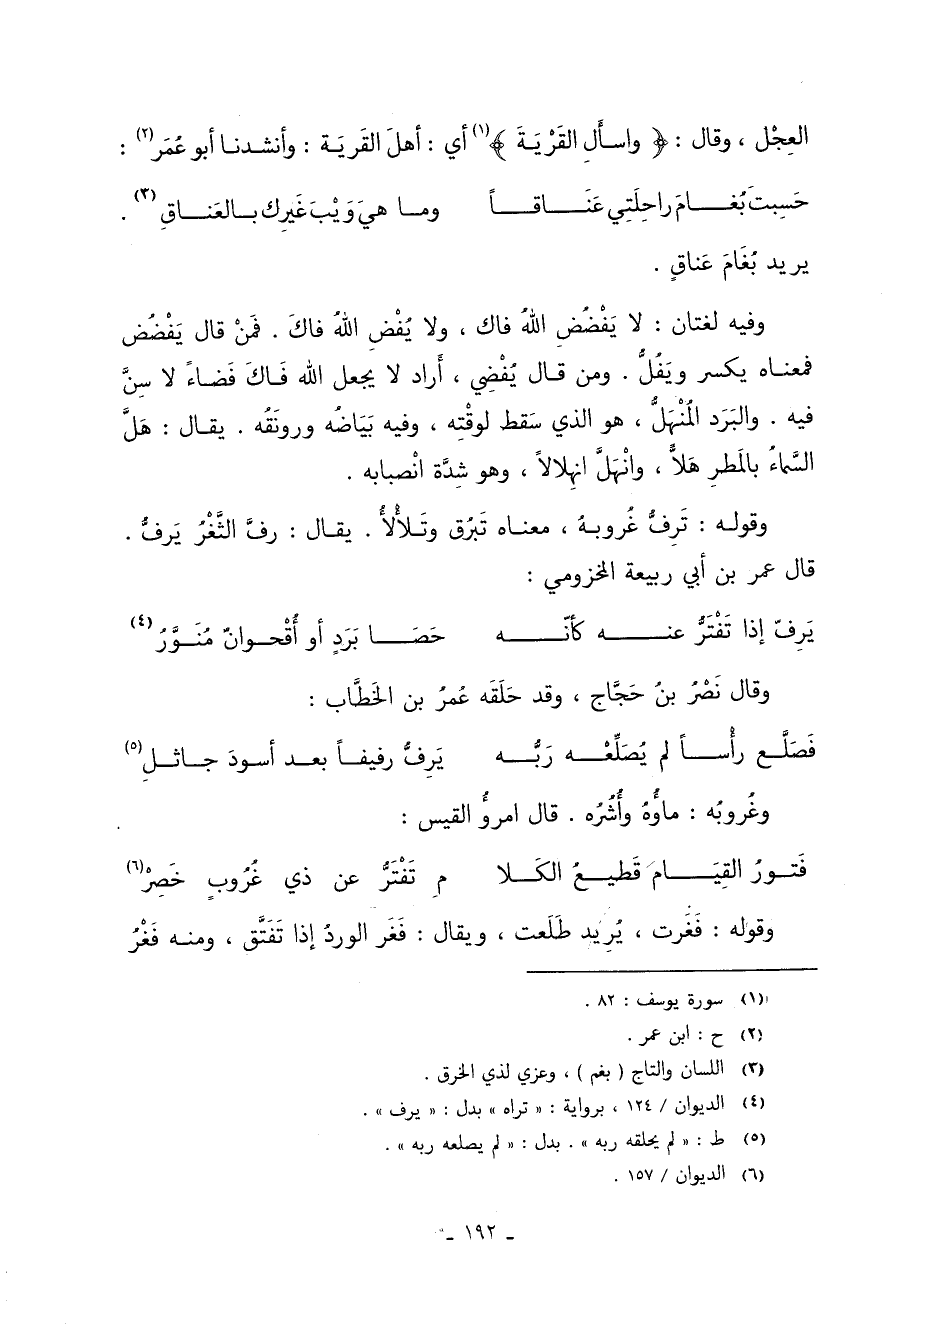 العِجْل ، وقال : ﴿ واسأَلِ القَرْيَةَ ﴾(١) أي : أهلَ القَريَة : وأنشدنا أبو عُمَر(٢) :
حَسِبتَ بُغَــامَ راحِلَتي عَنَــاقــاً ومـا هيَ وَيْبَ غَيرِك بـالعَنـاقِ(٣) .
يريد بُغَامَ عَناقٍ .
وفيه لغتان : لا يَفْضُضِ اللهُ فاك ، ولا يُفْضِ اللهُ فاكَ . فمَنْ قال يَفْضُض
فمعنـاه يكسر ويَفُلُّ . ومن قـال يُفْضِي ، أراد لا يجعل الله فـاكَ فَضـاءً لا سِنَّ
فيه . والبَرَد المُنْهَلُّ ، هو الذي سَقط لوقْتِه ، وفيه بَيَاضُه ورونَقُه . يقـال : هَلَّ
السَّماءُ بالمَطرِ هَلاًّ ، وانْهَلَّ انهِلالاً ، وهو شدَّة انْصبابه .
وقولـه : تَرِفُّ غُروبـهُ ، معنـاه تَبرُق وتَـلأْلأُ . يقـال : رفَّ الثَّغْرُ يَرِفُّ .
قال عمر بن أبي ربيعة المخزومي :
يَرِفّ إذا تَفْتَرُّ عنــــه كأنّــــه حَصَـا بَرَدٍ أو أُقْحـوانٌ مُنَـوَّرُ(٤)
وقال نَصْرُ بنُ حَجَّاج ، وقد حَلَقَه عُمرُ بن الخَطَّاب :
فَصَلَّـع رأْسـاً لم يُصَلِّعْــه رَبُّــه يَرِفُّ رفيفـاً بعـد أسودَ جـاثـلِ(٥)
وغُروبُه : ماؤهُ وأُشُرُه . قال امرؤُ القيس :
فَتـورُ القيَــام قَطيـعُ الكَـلا مِ تَفْتَرُّ عن ذي غُرُوبٍ خَصِرْ(٦)
وقوله : فَغَرت ، يُريد طَلَعت ، ويقال : فَغَر الوردُ إذا تَفَتَّق ، ومنـه فَغْرُ
(١) سورة يوسف : ٨٢ .
(٢) ح : ابن عمر .
(٣) اللسان والتاج ( بغم ) ، وعزي لذي الخرق .
(٤) الديوان / ١٢٤ ، برواية : « تراه » بدل : « يرف » .
(٥) ط : « لم يحلقه ربه » . بدل : « لم يصلعه ربه » .
(٦) الديوان / ١٥٧ .
ـ ١٩٢ ـ